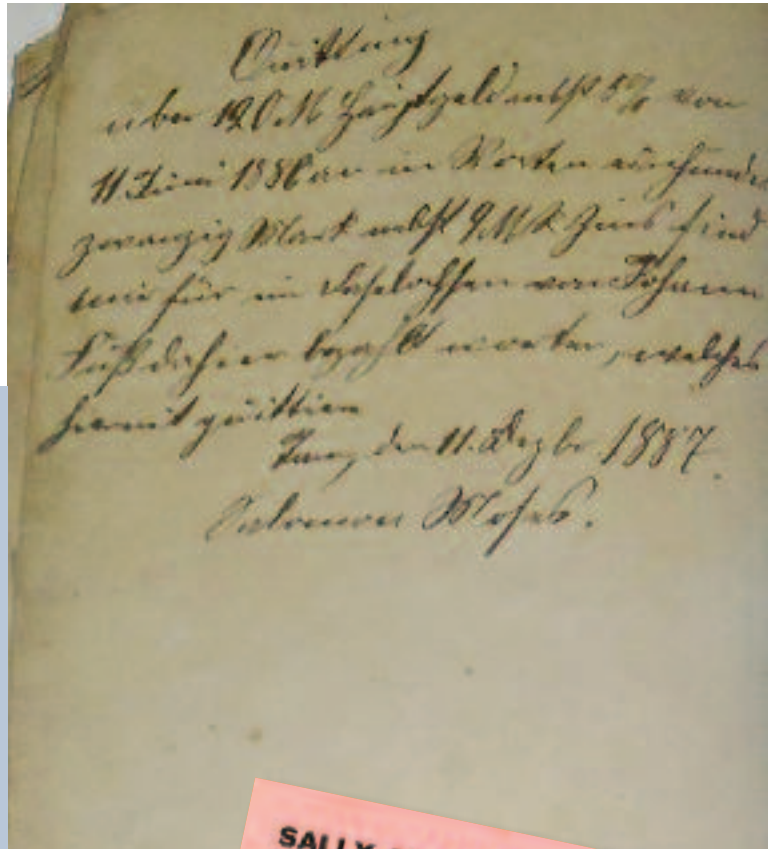 Quittung
über 120 M Hauptgeld nebst 5% von
11 Juni 1886 an in Worten einhundert
zwanzig Mark nebst 9 MK Zins sind
mir für ein Darlehen von Johann
Fuß dahier bezahlt worden, welches
hiermit quittire
den 11. Dezbr. 1887.
Salomon Moses.
SALLY